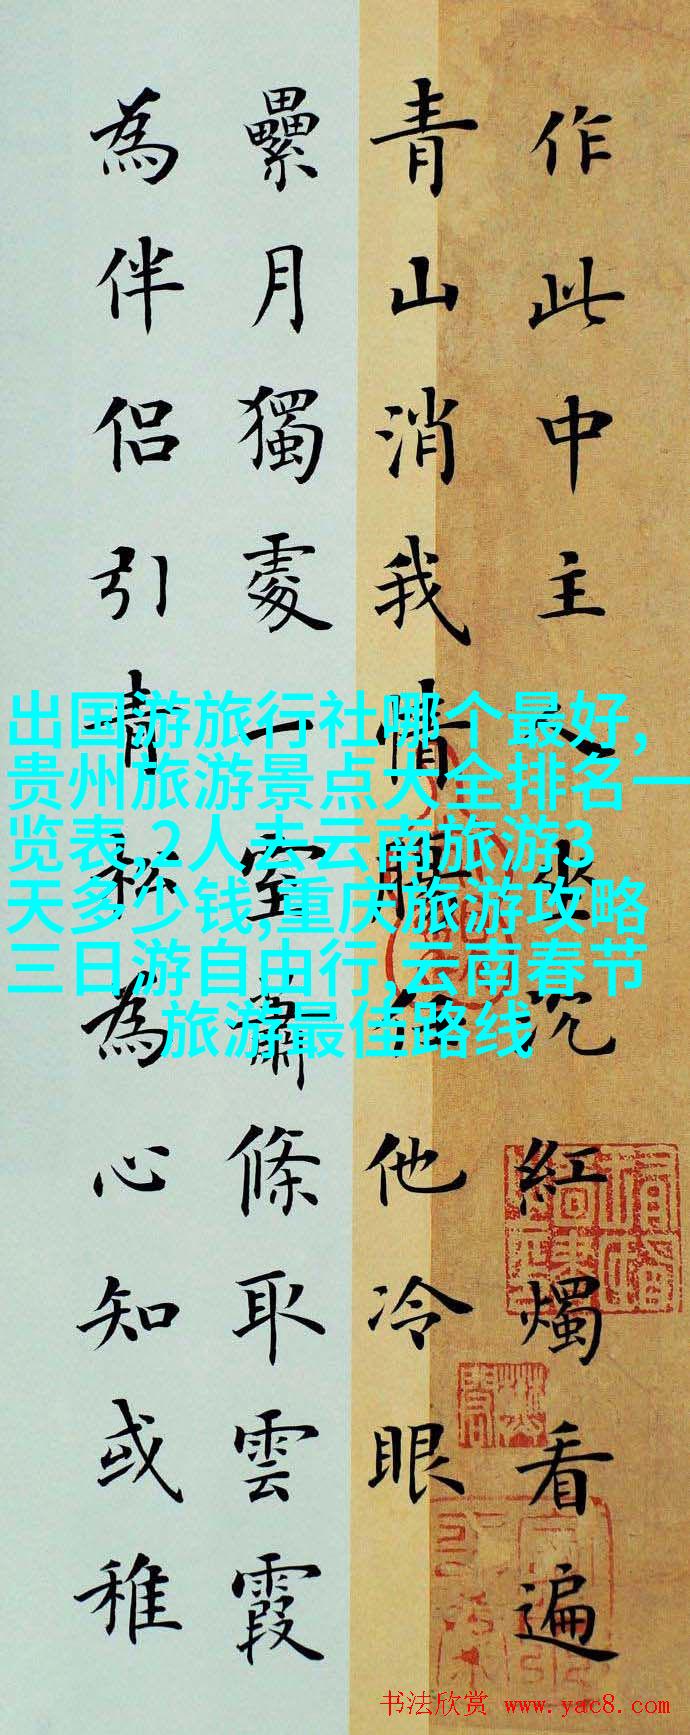 作此中主人坐沉紅燭看遍
青山消我情腸他冷眼
纍月獨處一室蕭條取雲霞
為伴侶引青松為心知或稚
出国游旅行社哪个最好,
贵州旅游景点大全排名一
览表,2人去云南旅游3
天多少钱,重庆旅游攻略
三日游自由行,云南春节
旅游最佳路线
书法欣赏 www.yac8.com